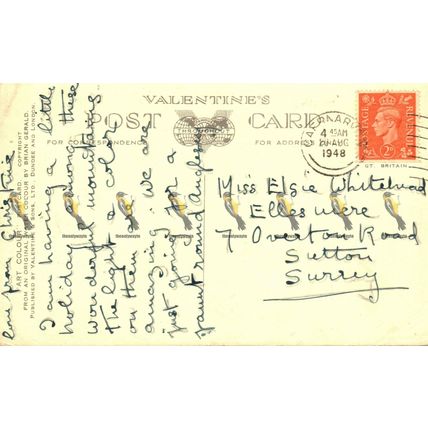 VALENTINE'S
POST CARD
FOR CORRESPONDENCE
FOR ADDRESS
"ART COLOUR" POSTCARD. COPYRIGHT
FROM AN ORIGINAL WATER COLOUR BY BRIAN GERALD.
PUBLISHED BY VALENTINE & SONS, LTD. DUNDEE AND LONDON.
I am having a little
holiday among these
wonderful mountains
the light & color
on them are
amazing. We are
just going for a
jaunt round Anglesey
love from Christine
CAERNARVON
4 15AM
20 AUG
1948
POSTAGE
REVENUE
2D
GT. BRITAIN
Miss Elsie Whitehead
Ellesmere
7 Overton Road
Sutton
Surrey